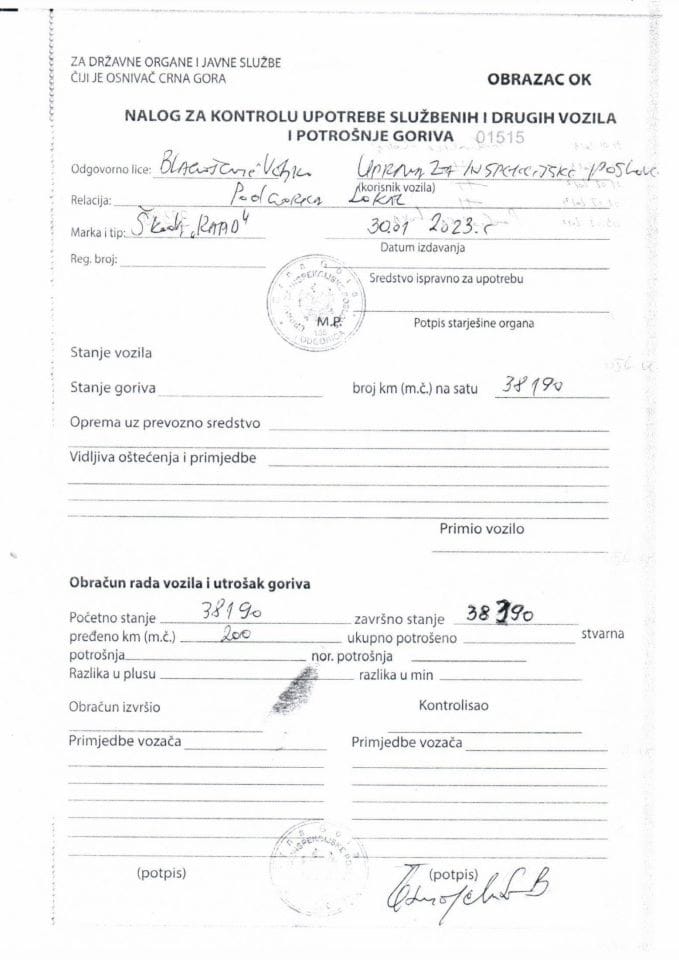 ZA DRŽAVNE ORGANE I JAVNE SLUŽBE
ČIJI JE OSNIVAČ CRNA GORA
OBRAZAC OK
NALOG ZA KONTROLU UPOTREBE SLUŽBENIH I DRUGIH VOZILA
I POTROŠNJE GORIVA 01515
Odgovorno lice: UPRAVA ZA INSPEKCIJSKE POSLOVE
(korisnik vozila)
Relacija: PODGORICA LOKAL
Marka i tip: Škoda „RAPID" 30.01 2023.
Datum izdavanja
Reg. broj:
Sredstvo ispravno za upotrebu
M.P.
Potpis starješine organa
Stanje vozila
Stanje goriva broj km (m.č.) na satu 38190
Oprema uz prevozno sredstvo
Vidljiva oštećenja i primjedbe
Primio vozilo
Obračun rada vozila i utrošak goriva
Početno stanje 38190 završno stanje 38390
pređeno km (m.č.) 200 ukupno potrošeno stvarna
potrošnja nor. potrošnja
Razlika u plusu razlika u min
Obračun izvršio Kontrolisao
Primjedbe vozača Primjedbe vozača
(potpis) (potpis)